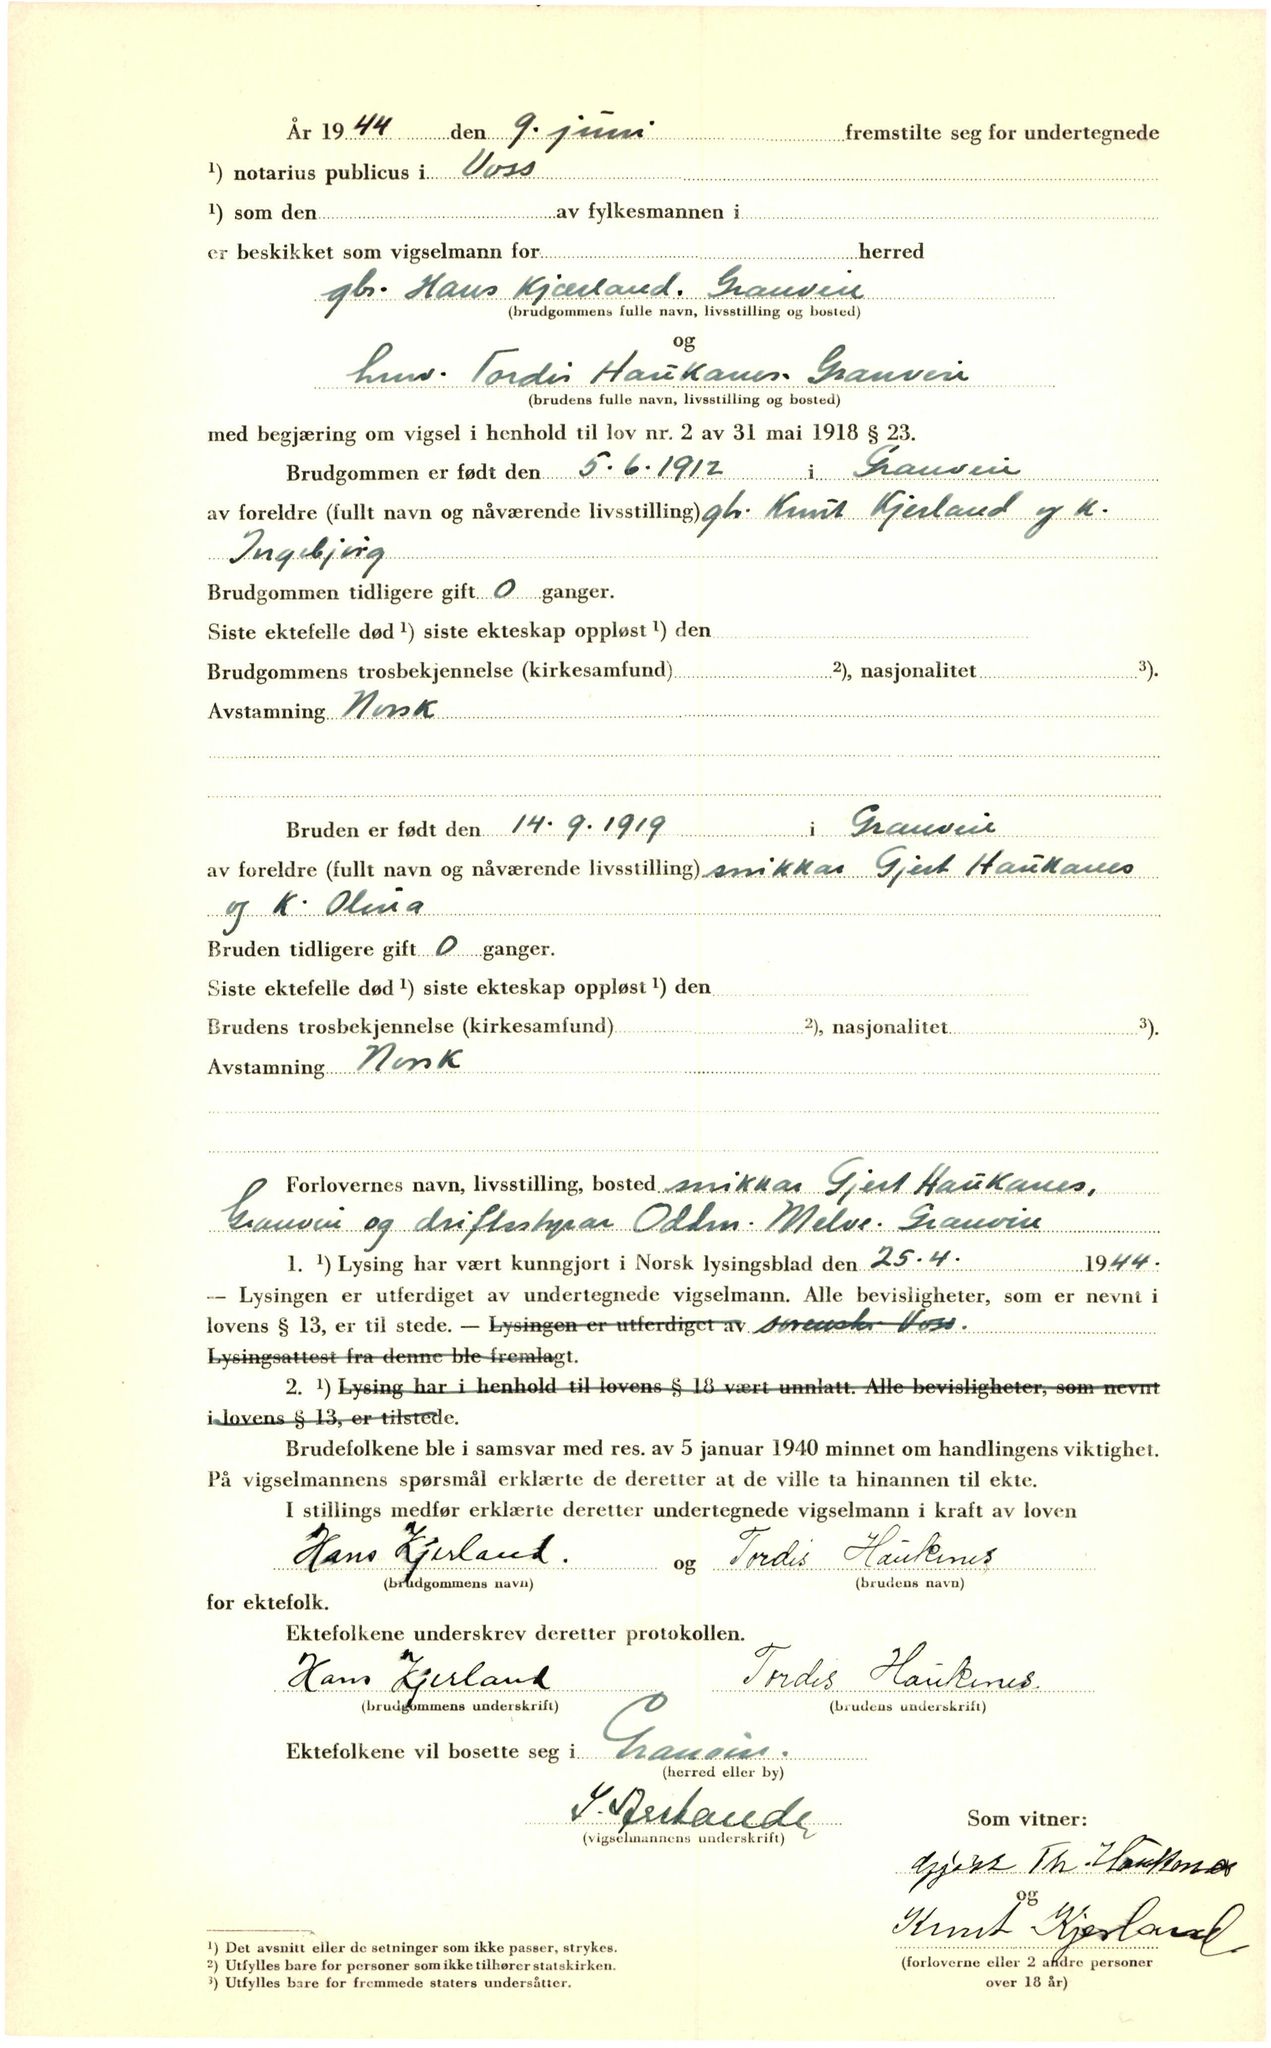 År 1944 den 9. juni fremstilte seg for undertegnede
¹) notarius publicus i Voss
¹) som den av fylkesmannen i
er beskikket som vigselmann for herred
gbr. Hans Kjærland. Granvin
(brudgommens fulle navn, livsstilling og bosted)
og
Tordis Haukanes. Granvin
(brudens fulle navn, livsstilling og bosted)
med begjæring om vigsel i henhold til lov nr. 2 av 31 mai 1918 § 23.
Brudgommen er født den 5.6.1912 i Granvin
av foreldre (fullt navn og nåværende livsstilling) gbr. Knut Kjerland og k.
Ingebjørg
Brudgommen tidligere gift 0 ganger.
Siste ektefelle død ¹) siste ekteskap oppløst ¹) den
Brudgommens trosbekjennelse (kirkesamfund) ²), nasjonalitet ³).
Avstamning Norsk
Bruden er født den 14.9.1919 i Granvin
av foreldre (fullt navn og nåværende livsstilling) snikkar Gjert Haukanes
og k. Olina
Bruden tidligere gift 0 ganger.
Siste ektefelle død ¹) siste ekteskap oppløst ¹) den
Brudens trosbekjennelse (kirkesamfund) ²), nasjonalitet ³).
Avstamning Norsk
Forlovernes navn, livsstilling, bosted snikkar Gjert Haukanes,
Granvin og driftsstyrar Oddm. Melve. Granvin
1. ¹) Lysing har vært kunngjort i Norsk lysingsblad den 25.4. 1944.
— Lysingen er utferdiget av undertegnede vigselmann. Alle bevisligheter, som er nevnt i
lovens § 13, er til stede. — Lysingen er utferdiget av sorenskr. Voss.
Lysingsattest fra denne ble fremlagt.
2. ¹) Lysing har i henhold til lovens § 18 vært unnlatt. Alle bevisligheter, som nevnt
i lovens § 13, er tilstede.
Brudefolkene ble i samsvar med res. av 5 januar 1940 minnet om handlingens viktighet.
På vigselmannens spørsmål erklærte de deretter at de ville ta hinannen til ekte.
I stillings medfør erklærte deretter undertegnede vigselmann i kraft av loven
Hans Kjerland. og Tordis Haukenes
(brudgommens navn) (brudens navn)
for ektefolk.
Ektefolkene underskrev deretter protokollen.
Hans Kjerland Tordis Haukenes.
(brudgommens underskrift) (brudens underskrift)
Ektefolkene vil bosette seg i Granvin.
(herred eller by)
(vigselmannens underskrift)
Som vitner:
Gjert Th. Haukenes
og
Knut Kjerland
(forloverne eller 2 andre personer
over 18 år)
¹) Det avsnitt eller de setninger som ikke passer, strykes.
²) Utfylles bare for personer som ikke tilhører statskirken.
³) Utfylles bare for fremmede staters undersåtter.